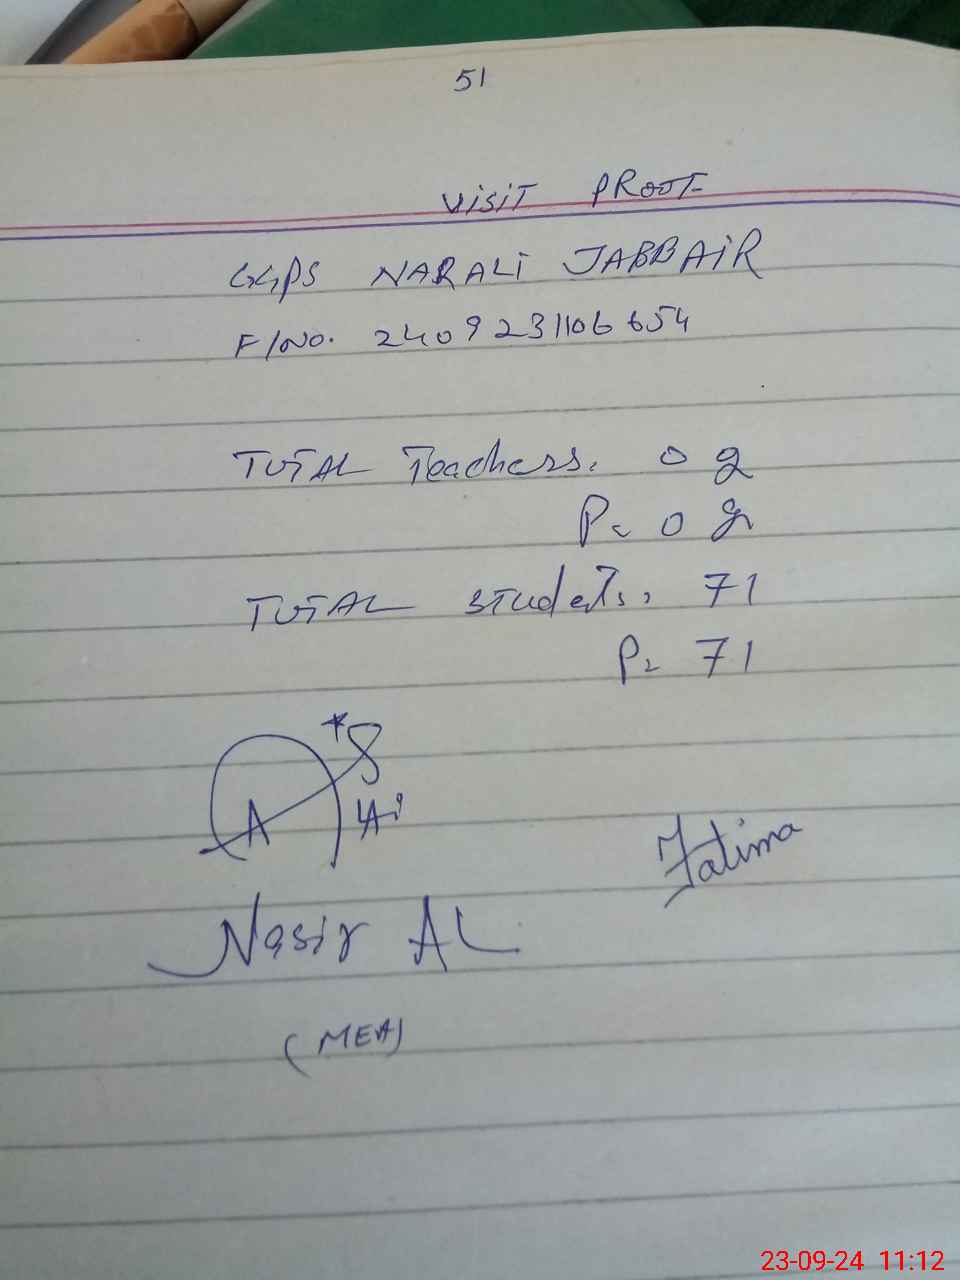 51
VISIT PROOF
GGPS NARALI JABBAIR
F/NO. 2409231106654
TOTAL Teachers. 02
P= 02
TOTAL Students, 71
P= 71
A
Fatima
Nasir AL
(MEA)
23-09-24 11:12